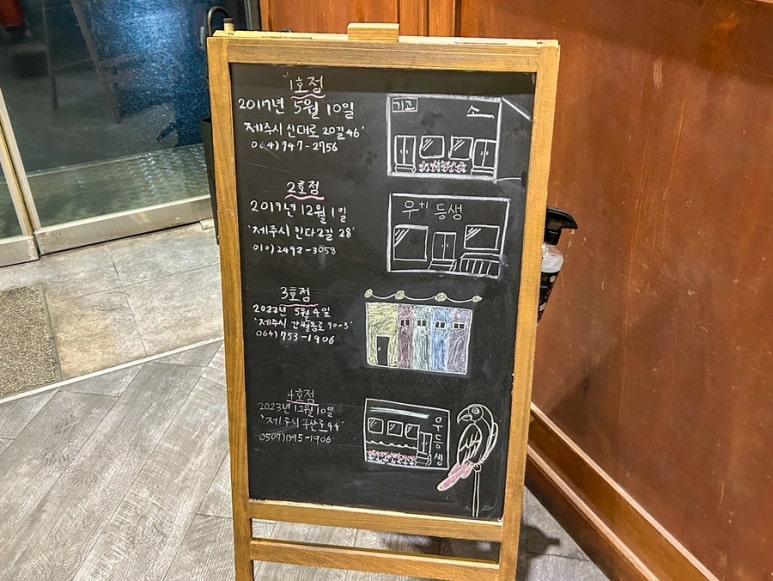 1호점
2017년 5월 10일
'제주시 신대로 20길 46'
064) 747-2756
기고
소
2호점
2019년 12월 1일
'제주시 인다2길 28'
010) 2492-3058
우 등생
3호점
2022년 5월 4일
'제주시 간월동로 90-3'
064) 753-1906
4호점
2023년 12월 10일
'제주시 구산로 44'
0507) 1395-1906
우등생